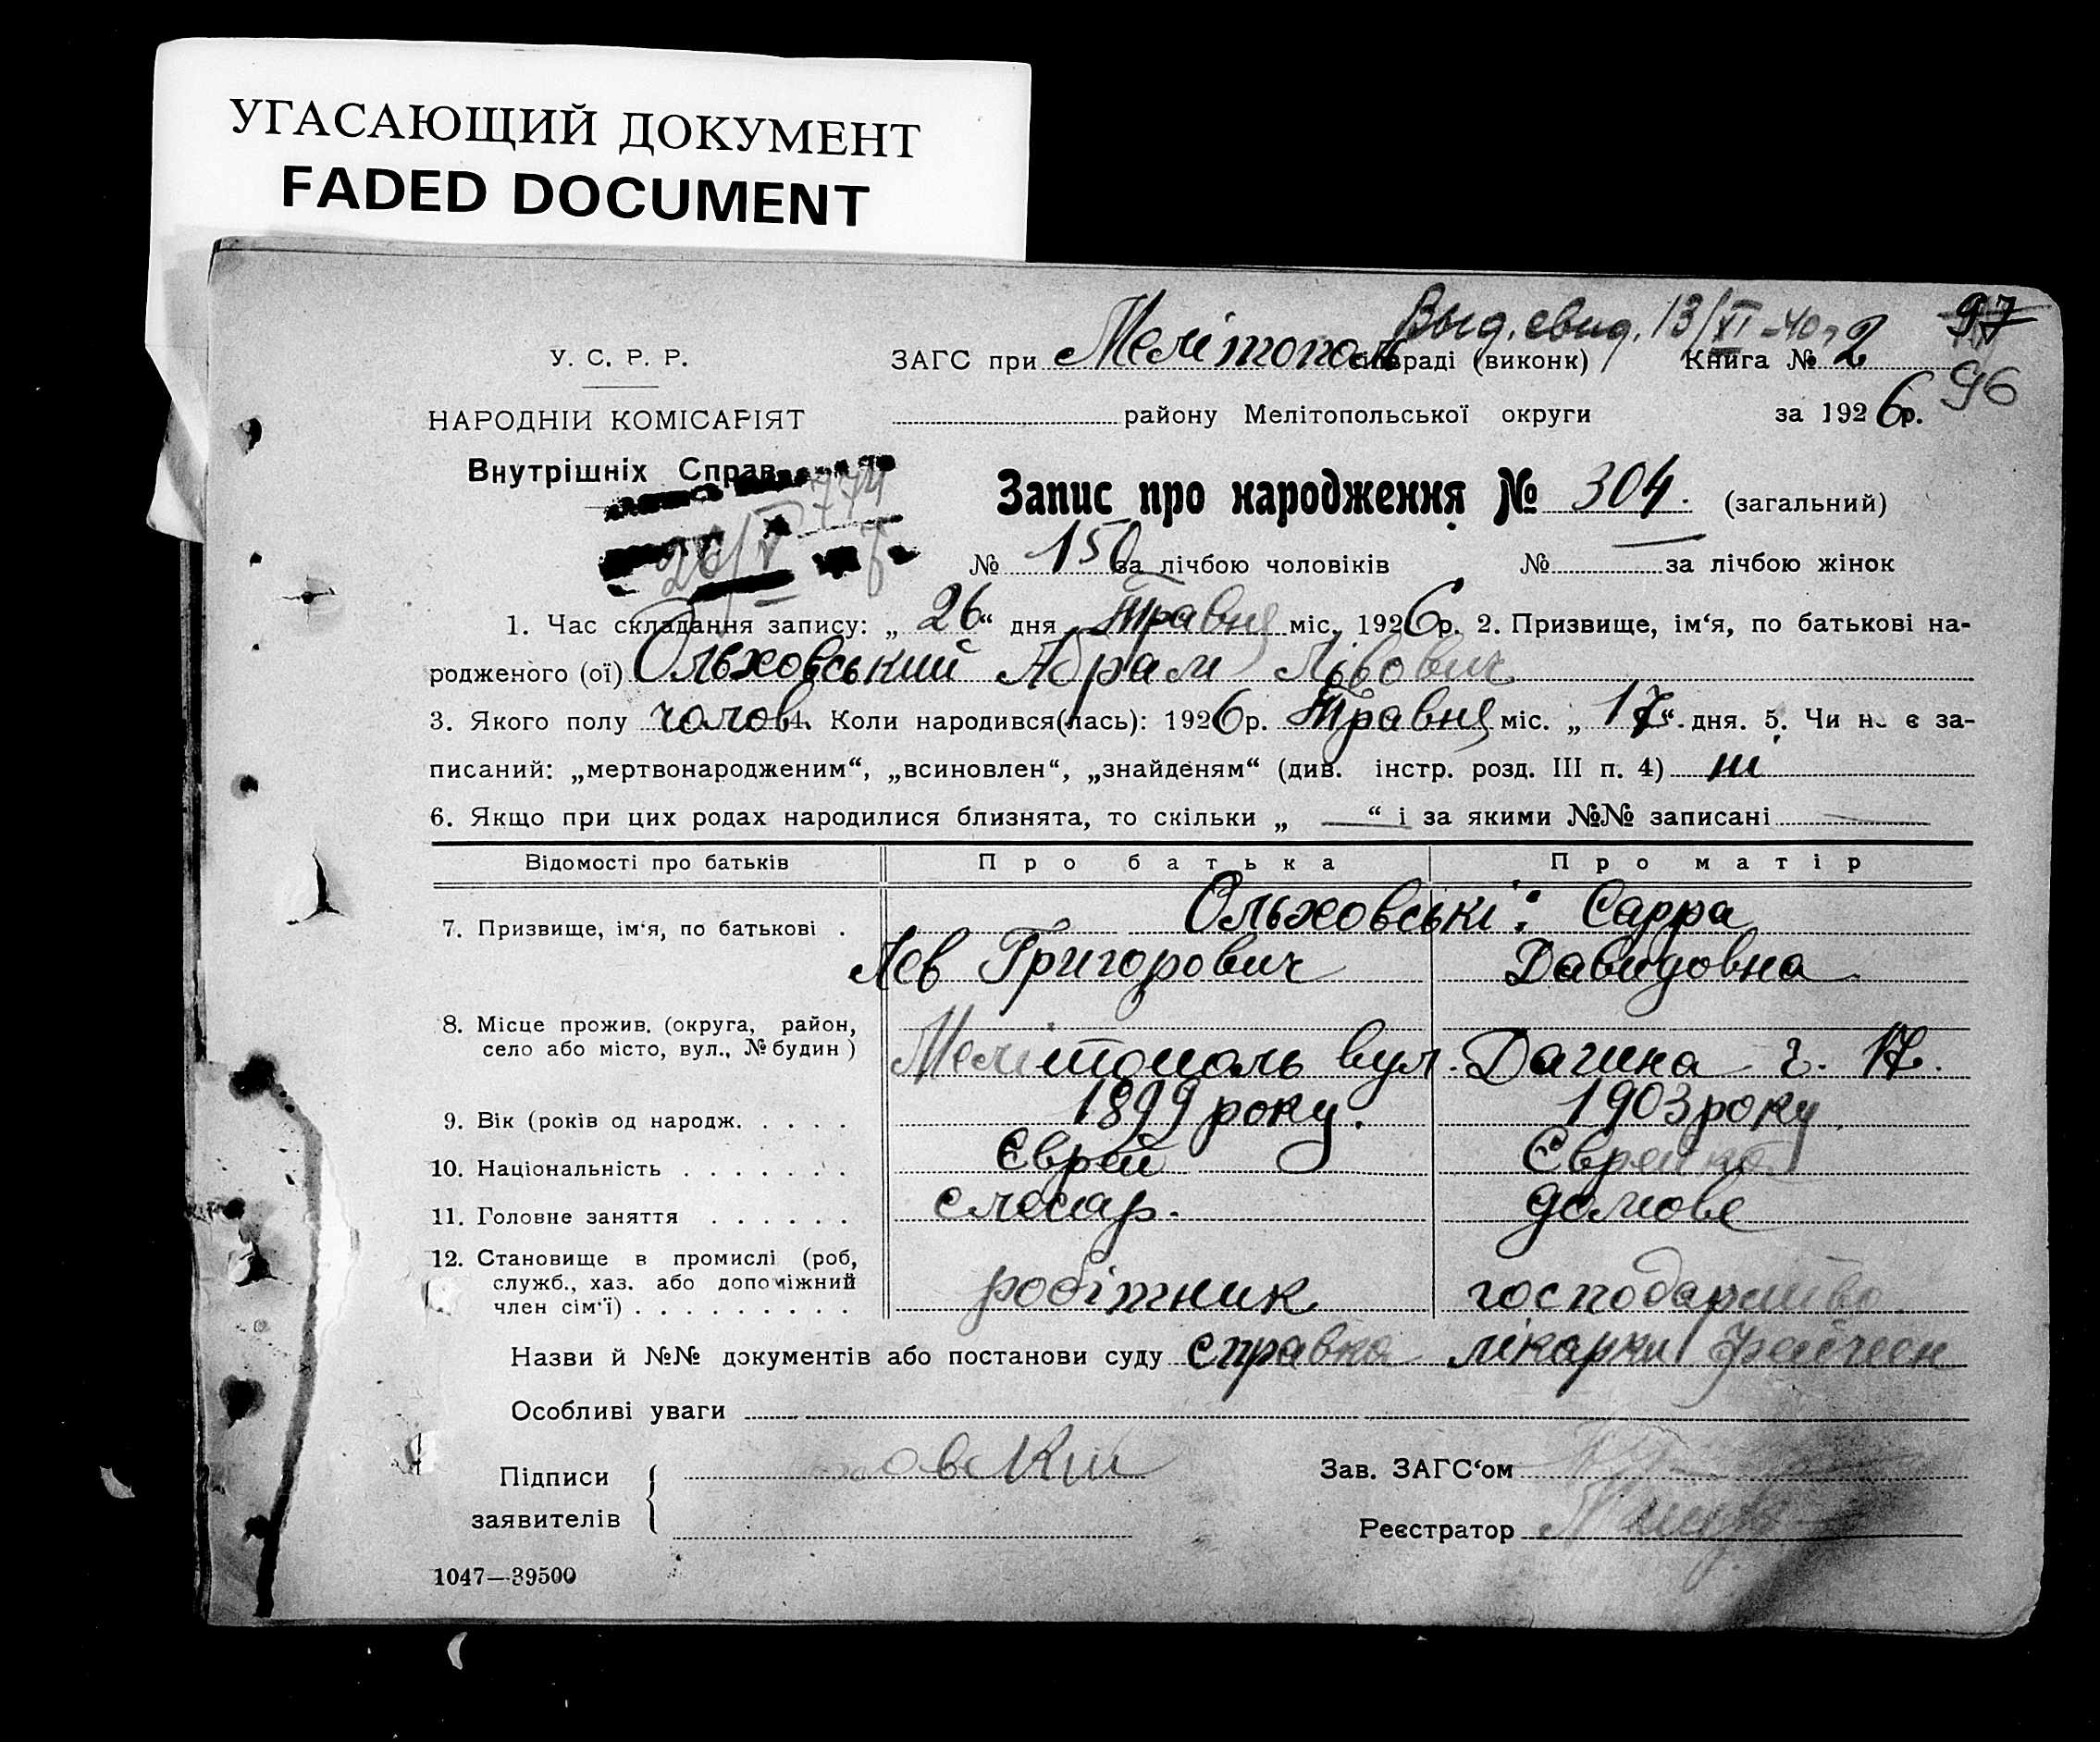 УГАСАЮЩИЙ ДОКУМЕНТ
FADED DOCUMENT
Выд. свид. 13/VI-40г
97
96
У. С. Р. Р.
ЗАГС при Мелітополь раді (виконк) Книга № 2
НАРОДНІЙ КОМІСАРІЯТ
району Мелітопольської округи за 1926р.
Внутрішніх Справ
774
26/V
Запис про народження № 304. (загальний)
№ 150 за лічбою чоловіків № — за лічбою жінок
1. Час складання запису: „26“ дня Травня міс. 1926р. 2. Призвище, ім‘я, по батькові на-
родженого (ої) Ольховський Абрам Львович
3. Якого полу чолов. 4. Коли народився(лась): 1926р. Травня міс. „17“ дня. 5. Чи не є за-
писаний: „мертвонародженим“, „всиновлен“, „знайденям“ (див. інстр. розд. III п. 4) ні
6. Якщо при цих родах народилися близнята, то скільки „ — “ і за якими №№ записані —
Відомості про батьків Про батька Про матір
7. Призвище, ім‘я, по батькові . Ольховські: Сарра
Лев Григорович Давидовна
8. Місце прожив. (округа, район,
село або місто, вул., № будин) Мелітополь вул. Дагина ч. 17.
9. Вік (років од народж. . . . . 1899 року. 1903 року.
10. Національність . . . . . . . Єврей Єврейка
11. Головне заняття . . . . . . слюсар. домове
12. Становище в промислі (роб,
служб., хаз. або допоміжний
член сім‘ї) . . . . . . . . . робітник господарство
Назви й №№ документів або постанови суду справка лікарки
Особливі уваги
Підписи
заявителів
овский
Зав. ЗАГС‘ом
Реєстратор
1047—39500